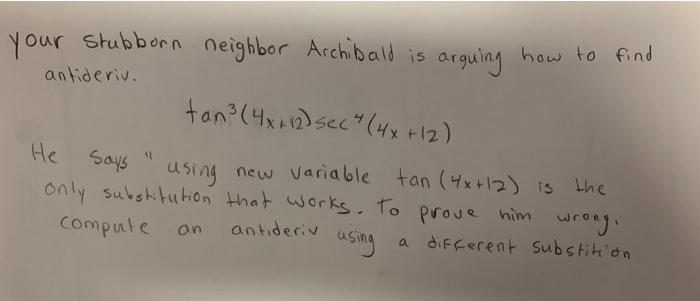 your stubborn neighbor Archibald is arguing how to find
antideriv.
tan³(4x+12)sec⁴(4x+12)
He says "using new variable tan (4x+12) is the
only substitution that works. To prove him wrong,
compute an antideriv using a different substitiön